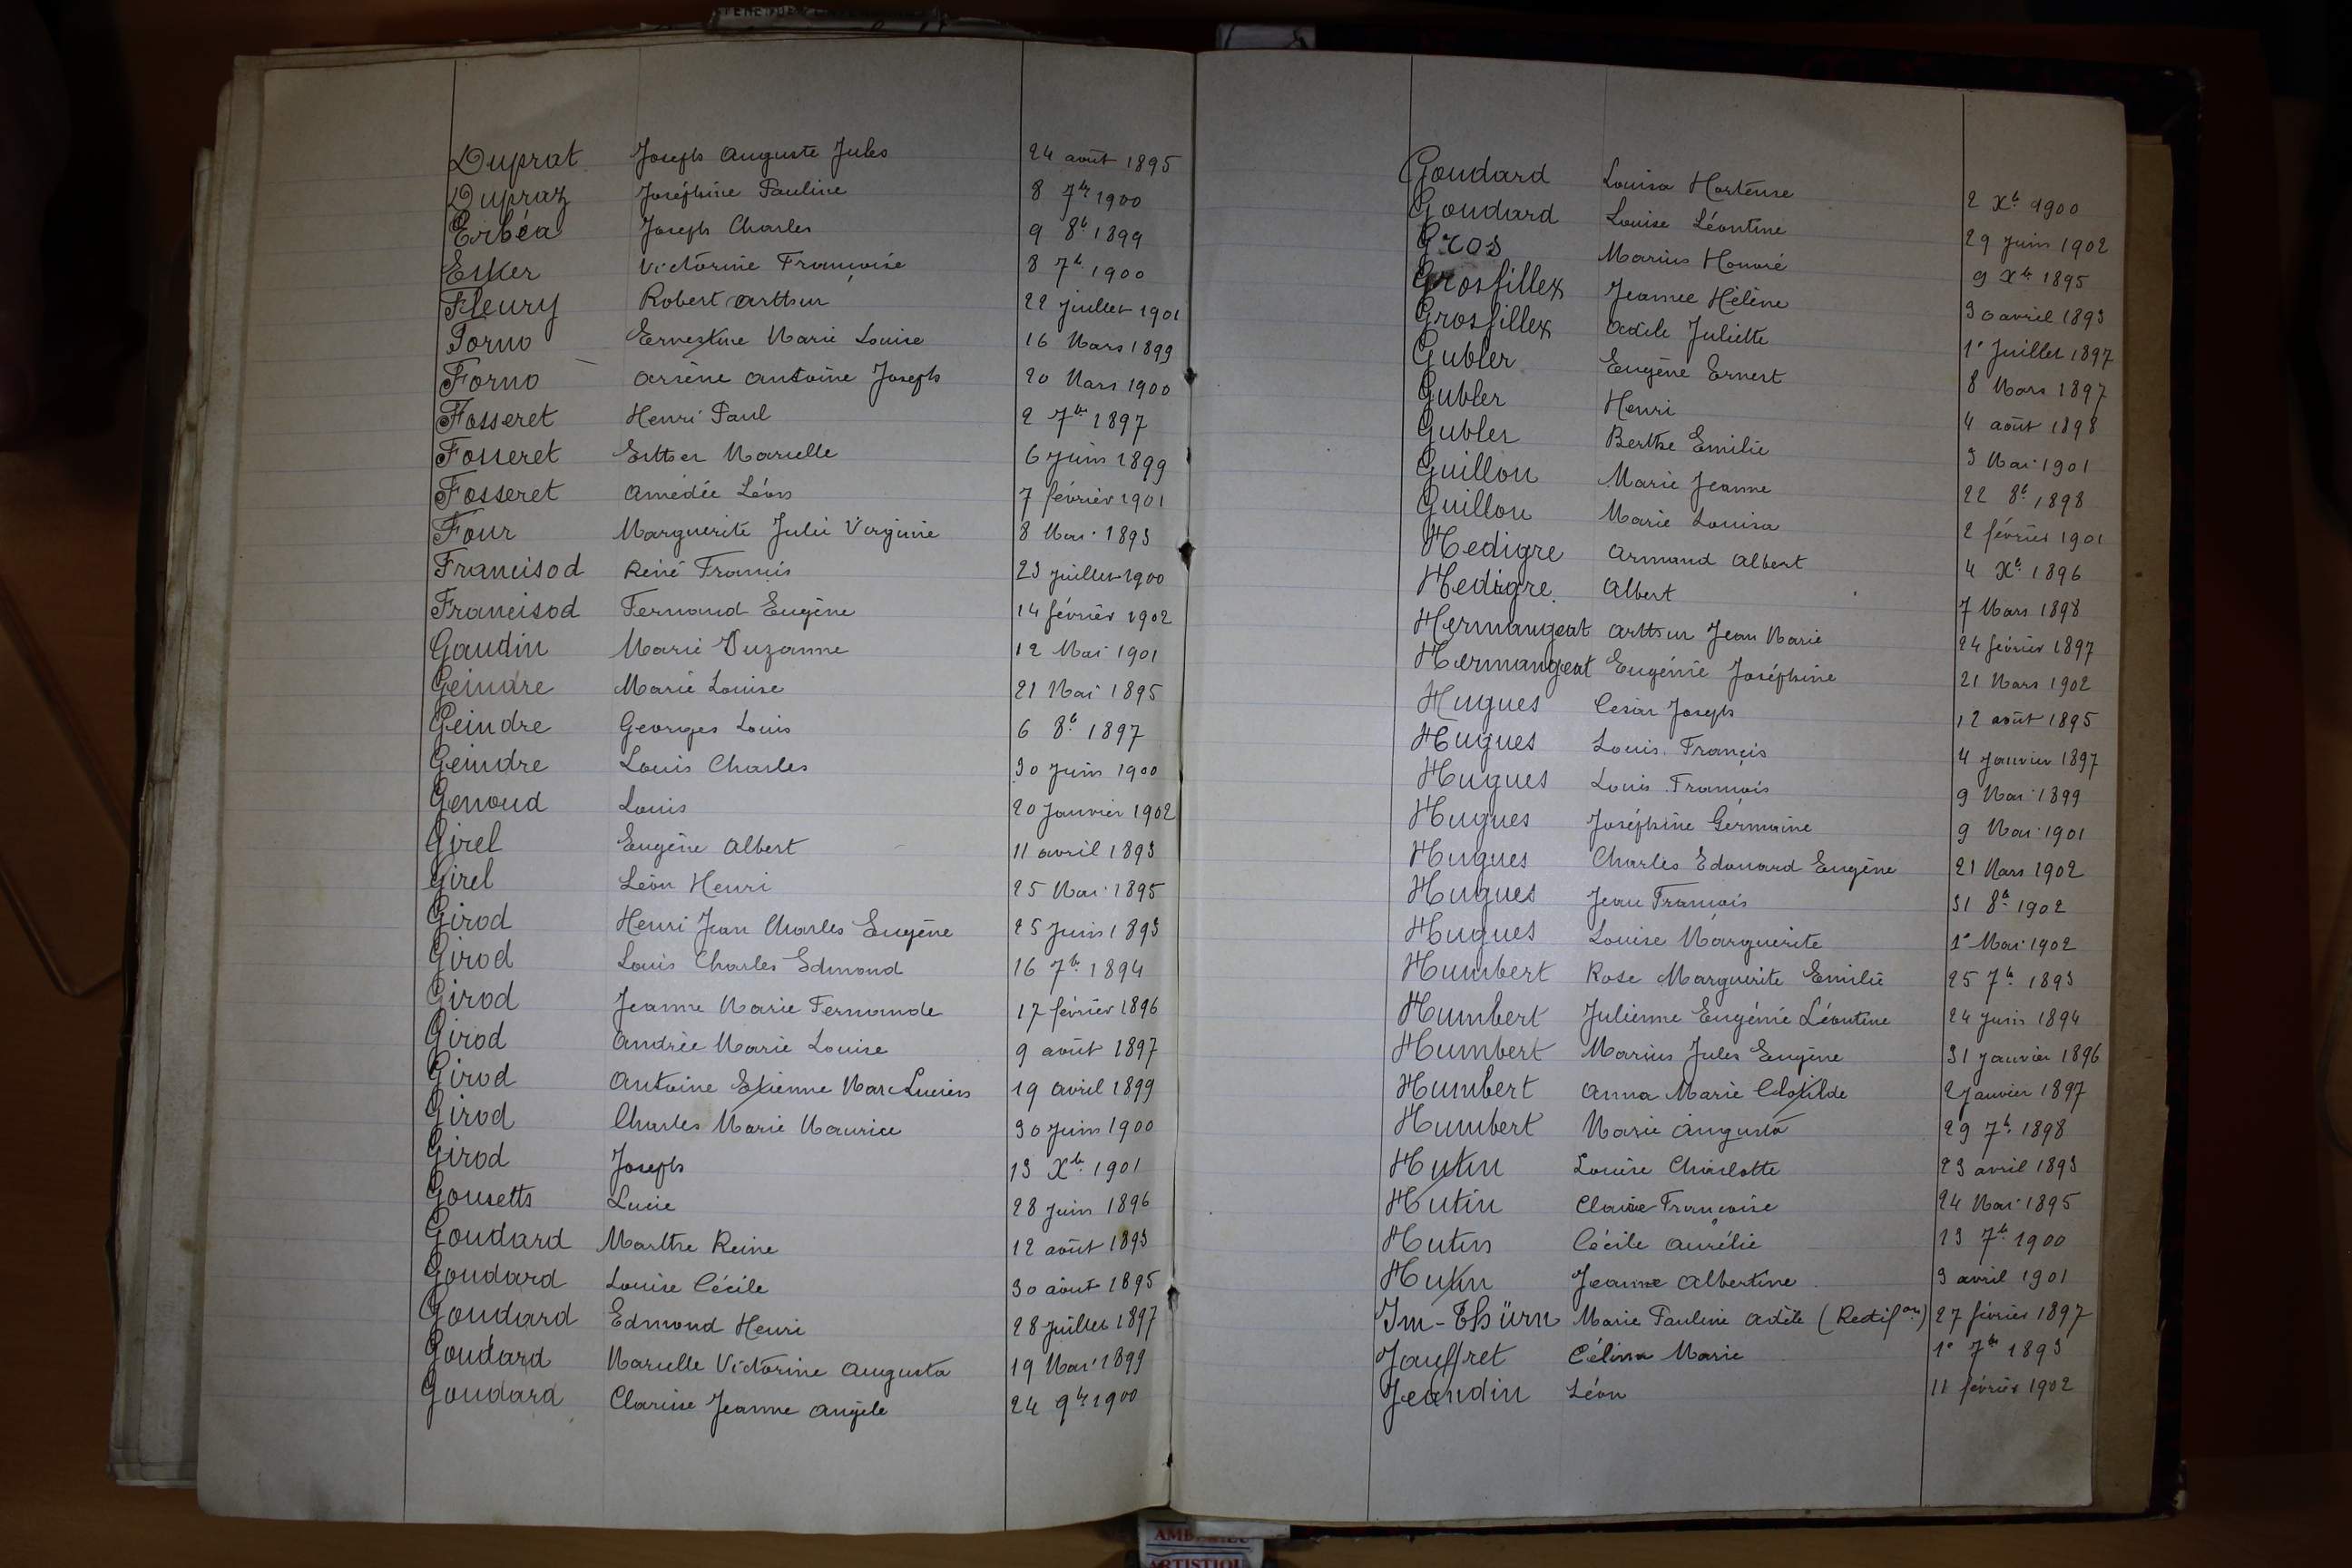 Duprat Joseph Auguste Jules 24 août 1895
Dupraz Joséphine Pauline 8 7bre 1900
Erbéa Joseph Charles 9 8b. 1899
Esker Victorine Françoise 8 7b. 1900
Fleury Robert Arthur 22 juillet 1901
Forno Ernestine Marie Louise 16 Mars 1899
Forno Arsène Antoine Joseph 20 Mars 1900
Fosseret Henri Paul 2 7bre 1897
Fosseret Esther Marcelle 6 juin 1899
Fosseret Amédée Léon 7 février 1901
Four Marguerite Julie Virginie 8 Mai 1893
Francisod René Francis 23 juillet 1900
Francisod Fernand Eugène 14 février 1902
Gaudin Marie Suzanne 12 Mai 1901
Geindre Marie Louise 21 Mai 1895
Geindre Georges Louis 6 8b. 1897
Geindre Louis Charles 30 juin 1900
Genoud Louis 20 Janvier 1902
Girel Eugène Albert 11 avril 1893
Girel Léon Henri 25 Mai 1895
Girod Henri Jean Charles Eugène 25 Juin 1893
Girod Louis Charles Edmond 16 7b. 1894
Girod Jeanne Marie Fernande 17 février 1896
Girod Andrée Marie Louise 9 août 1897
Girod Antoine Etienne Marc Lucien 19 avril 1899
Girod Charles Marie Maurice 30 juin 1900
Girod Joseph 13 Xb. 1901
Gonsetts Lucie 28 juin 1896
Goudard Marthe Reine 12 août 1893
Goudard Louise Cécile 30 août 1895
Goudard Edmond Henri 28 juillet 1897
Goudard Marcelle Victorine Augusta 19 Mai 1899
Goudard Clarisse Jeanne Angèle 24 9bre 1900
Goudard Louisa Hortense 2 Xb. 1900
Goudard Louise Léontine 29 juin 1902
Gros Marius Honoré 9 Xbre 1895
Grosfillex Jeanne Hélène 30 avril 1893
Grosfillex Adèle Juliette 1° Juillet 1897
Gubler Eugène Ernest 8 Mars 1897
Gubler Henri 4 août 1898
Gubler Berthe Emilie 3 Mai 1901
Guillon Marie Jeanne 22 8b. 1898
Guillon Marie Louisa 2 février 1901
Hedigre Armand Albert 4 Xb. 1896
Hedigre Albert 7 Mars 1898
Hermangeat Arthur Jean Marie 24 février 1897
Hermangeat Eugénie Joséphine 21 Mars 1902
Hugues Cesar Joseph 12 août 1895
Hugues Louis François 4 Janvier 1897
Hugues Louis François 9 Mai 1899
Hugues Joséphine Germaine 9 Mai 1901
Hugues Charles Edouard Eugène 21 Mars 1902
Hugues Jean François 31 8b. 1902
Hugues Louise Marguerite 1° Mai 1902
Humbert Rose Marguerite Emilie 25 7b. 1893
Humbert Julienne Eugénie Léontine 24 juin 1894
Humbert Marius Jules Eugène 31 janvier 1896
Humbert Anna Marie Clotilde 2 Janvier 1897
Humbert Marie Augusta 29 7b. 1898
Hutin Louise Charlotte 23 avril 1893
Hutin Claire Françoise 24 Mai 1895
Hutin Cécile Aurélie 13 7b. 1900
Hutin Jeanne Albertine 3 avril 1901
Im-Thürn Marie Pauline Adèle (Rectifon) 27 février 1897
Jauffret Célina Marie 1° 7bre 1893
Jeandin Léon 11 février 1902